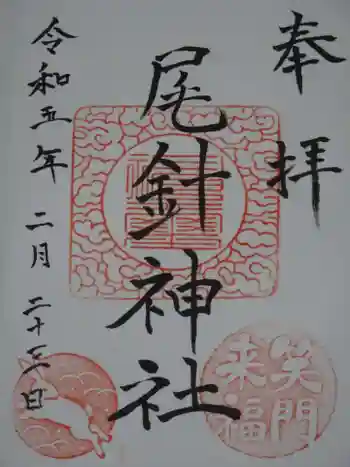 奉拝
尾針神社
令和五年二月二十三日
笑門来福